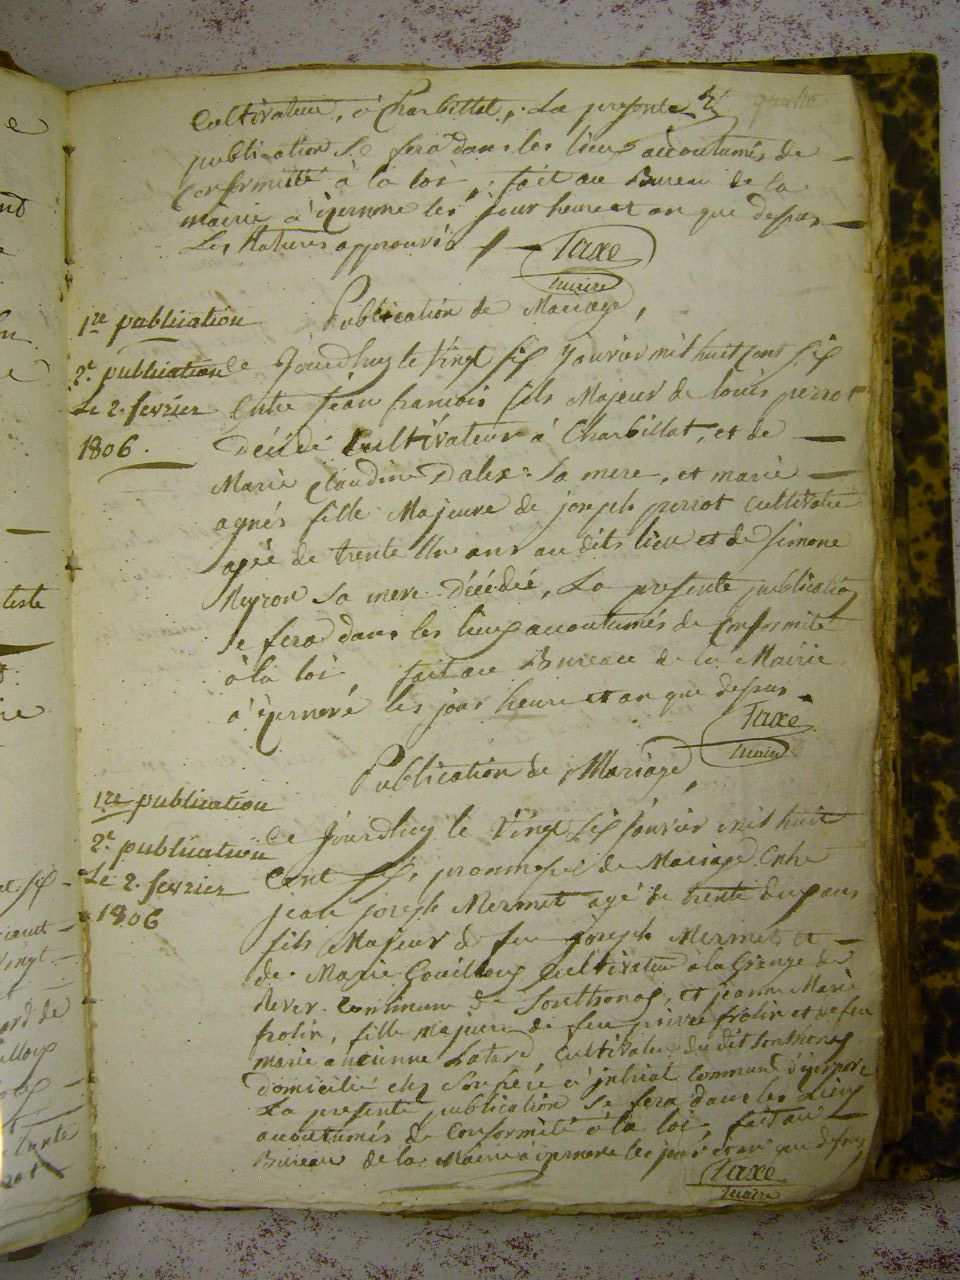 Cultivateur, à Charbillat, . La presente
publication Se fera dans les lieux accoutumés de
Conformité à la loi, : fait au Bureau de la
mairie à izernore les jour heure et an que dessus
Les Ratures approuvés Taxe
maire
1re publication
Publication de Mariage,
2e publication
Le 2. fevrier
1806.
Ce Jourdhuy le Vingt six Janvier mil huit cent six
Entre jean francois fils Majeur de louis perrot
Décédé Cultivateur à Charbillat, et de
Marie Claudine Dalex Sa mere, et marie
agnés fille Majeure de joseph perrot Cultivateur
agée de trente Un ans au dits lieu et de Simone
Reyrod Sa mere Décédée, La presente publication
Se fera dans les lieux accoutumés de Conformité
à la loi, fait au Bureau de la Mairie
à izernore les jour heure et an que dessus
Taxe
maire
1re publication
Publication de Mariage,
2e publication
Le 2. fevrier
1806
Ce Jourdhuy le Vingt six janvier mil huit
Cent six, promesse de Mariage Entre
jean joseph Mermet agé de trente deux ans
fils Majeur de feu joseph Mermet et
de Marie Gouilloux Cultivateur à la Grange de
Rever Commune de Sonthonax, et jeanne Marie
frolin, fille majeure de feu pierre frolin et de feu
marie Cultivateur du dit Sonthonax
domicilié chez Son frére à commune d'izernore
La presente publication Se fera dans les Lieux
accoutumés de Conformité à la loi fait au
Bureau de la Mairie a izernore les jour et an que dessus
Taxe
maire